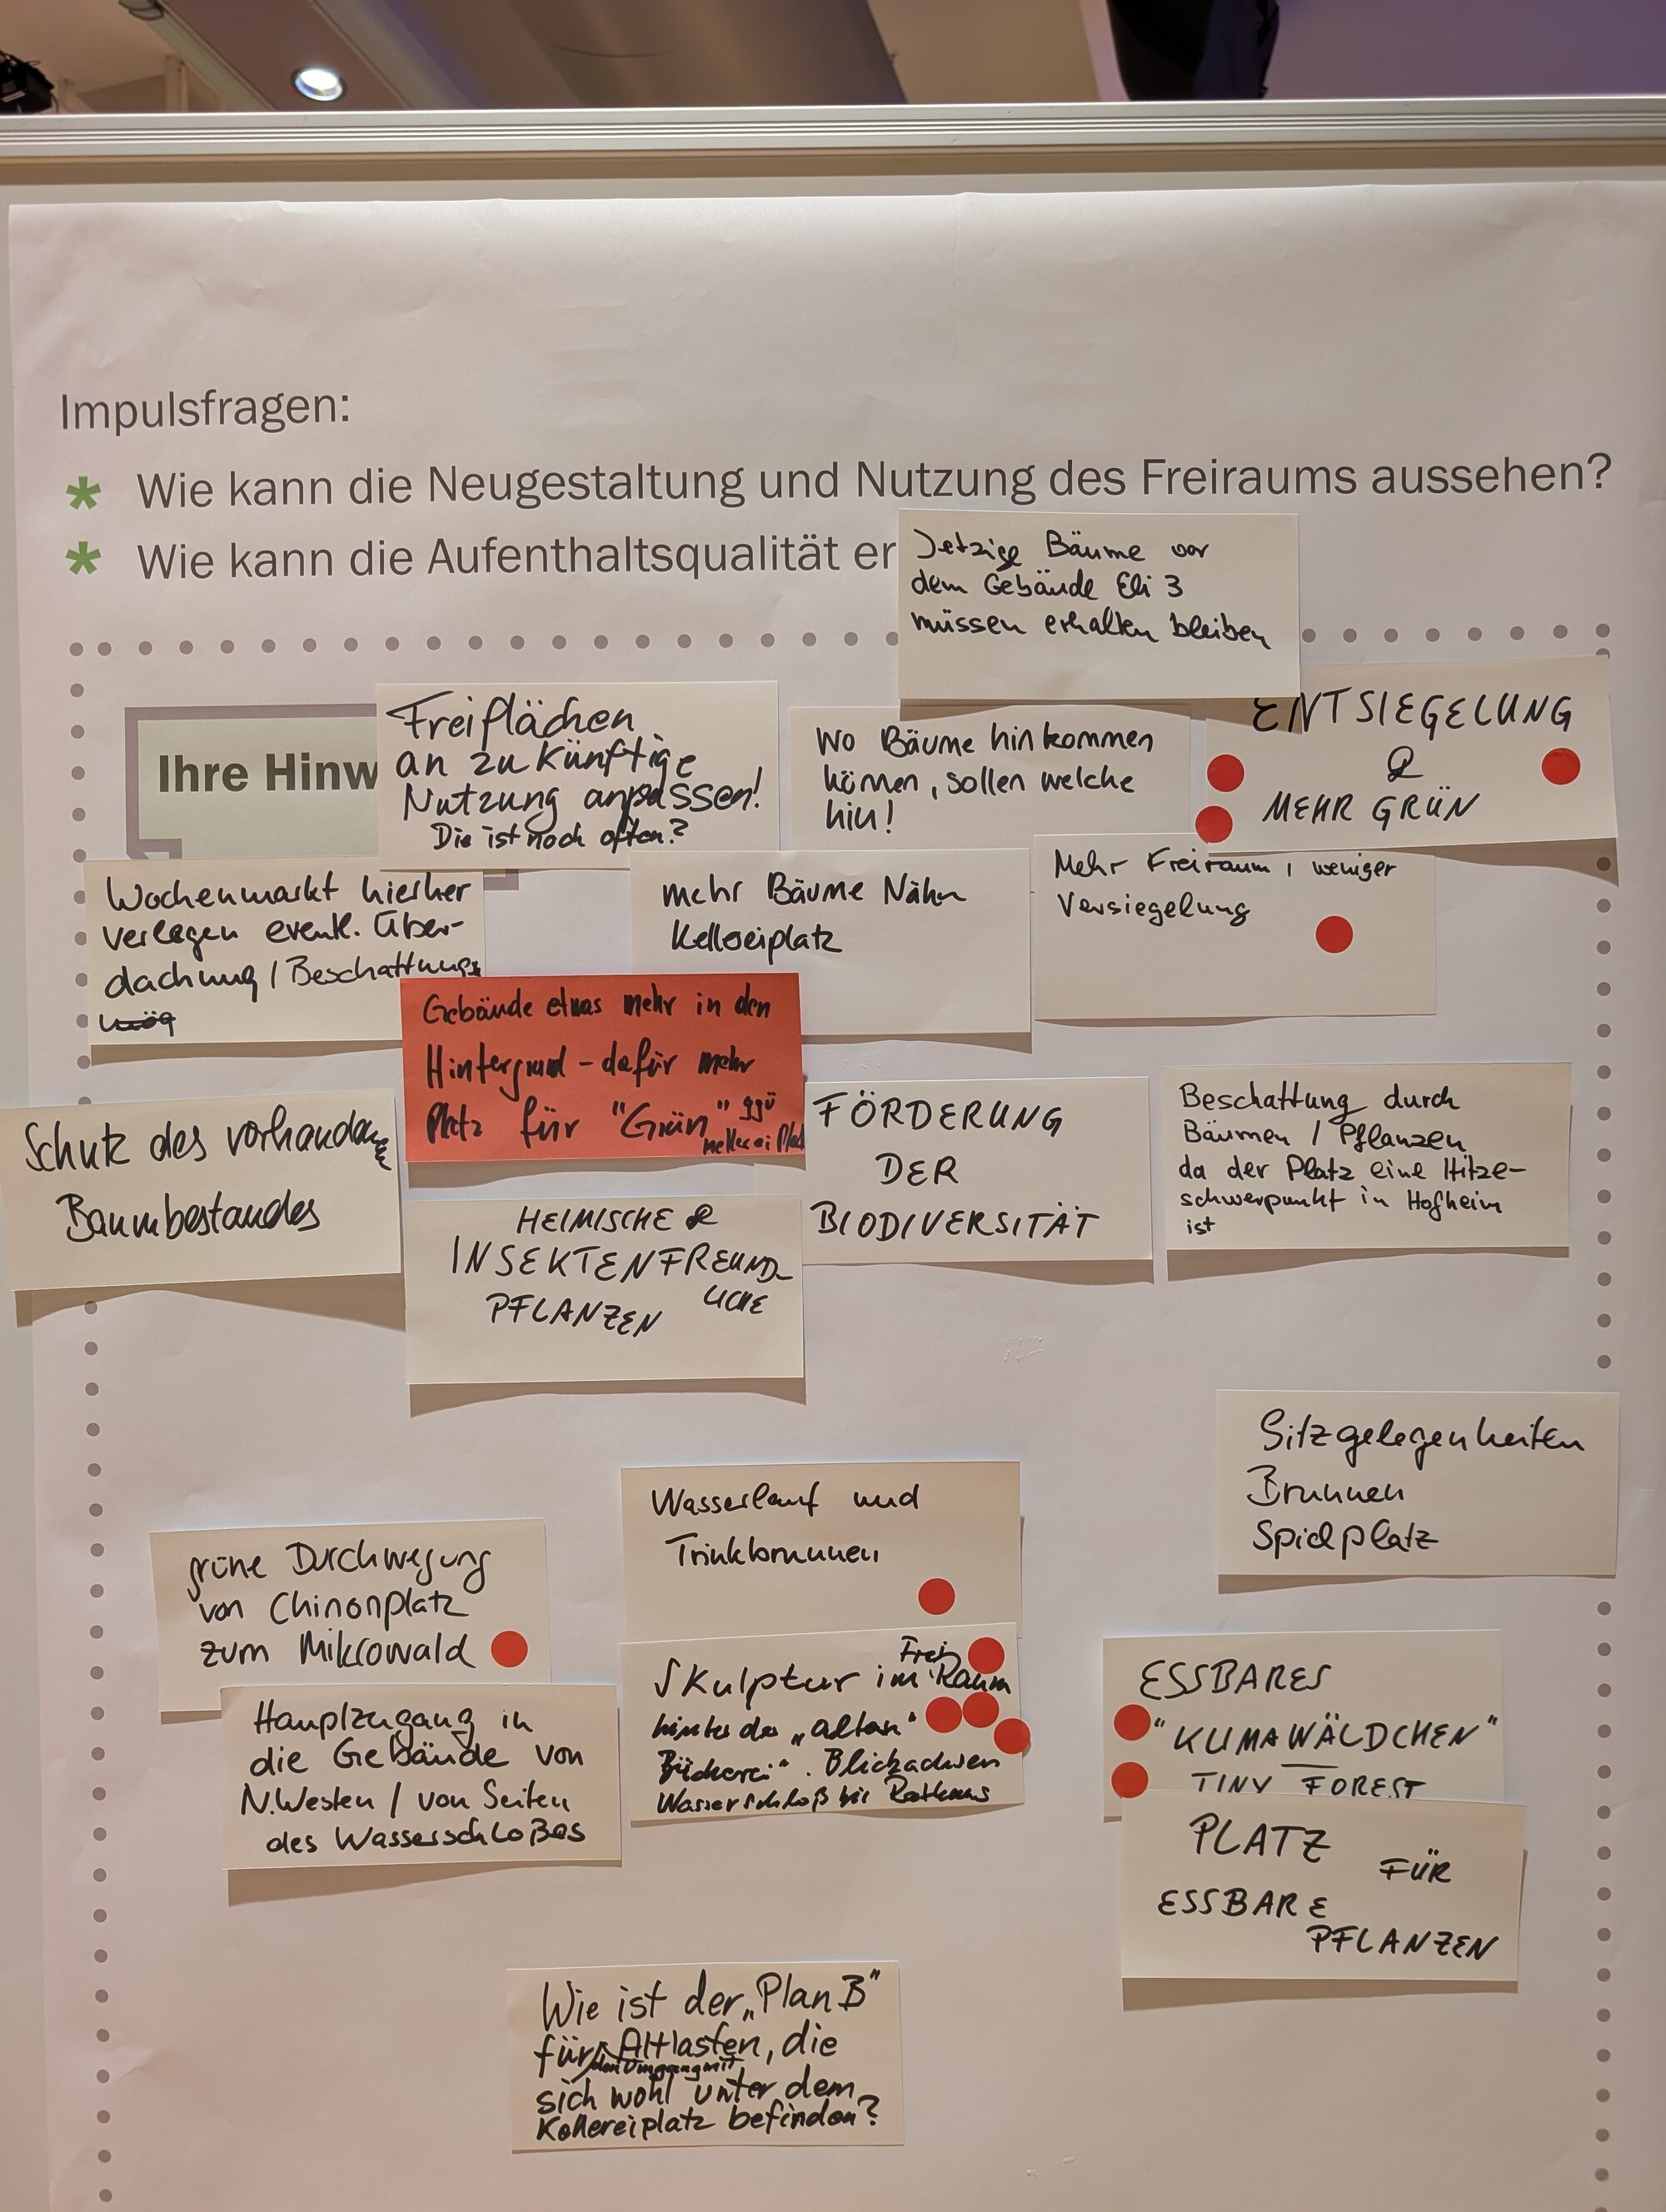 Impulsfragen:
* Wie kann die Neugestaltung und Nutzung des Freiraums aussehen?
* Wie kann die Aufenthaltsqualität er
Jetzige Bäume vor
dem Gebäude Eli 3
müssen erhalten bleiben
Ihre Hinw
Freiflächen
an zukünftige
Nutzung anpassen!
Die ist noch offen?
Wo Bäume hinkommen
können, sollen welche
hin!
ENTSIEGELUNG
&
MEHR GRÜN
Wochenmarkt hierher
verlegen eventl. Über-
dachung / Beschattung
mehr Bäume Nähe
Kellereiplatz
Mehr Freiraum, weniger
Versiegelung
Gebäude etwas mehr in den
Hintergrund - dafür mehr
Platz für "Grün" ggü
Kellereiplatz
Schutz des vorhandenen
Baumbestandes
HEIMISCHE &
INSEKTENFREUND-
LICHE
PFLANZEN
FÖRDERUNG
DER
BIODIVERSITÄT
Beschattung durch
Bäumen / Pflanzen
da der Platz eine Hitze-
schwerpunkt in Hofheim
ist
Sitzgelegenheiten
Brunnen
Spielplatz
Wasserlauf und
Trinkbrunnen
grüne Durchwegung
von Chinonplatz
zum Mikrowald
Skulptur im Frei Raum
hinter der „alten"
Bücherei". Blickachsen
Wasserschloß bis Rathaus
Hauptzugang in
die Gebäude von
N.Westen / von Seiten
des Wasserschloßes
ESSBARES
"KLIMAWÄLDCHEN"
TINY FOREST
PLATZ FÜR
ESSBARE
PFLANZEN
Wie ist der „Plan B"
für den Umgang mit Altlasten, die
sich wohl unter dem
Kellereiplatz befinden?